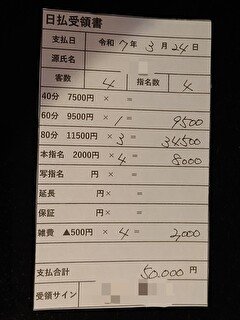 日払受領書
支払日 令和 7年 3月 24日
源氏名
客数 4 指名数 4
40分 7500円 × =
60分 9500円 × 1 = 9500
80分 11500円 × 3 = 34,500
本指名 2000円 × 4 = 8000
写指名 円× =
延長 円× =
保証 円× =
雑費 ▲500円 × 4 = 2,000
支払合計 50,000円
受領サイン